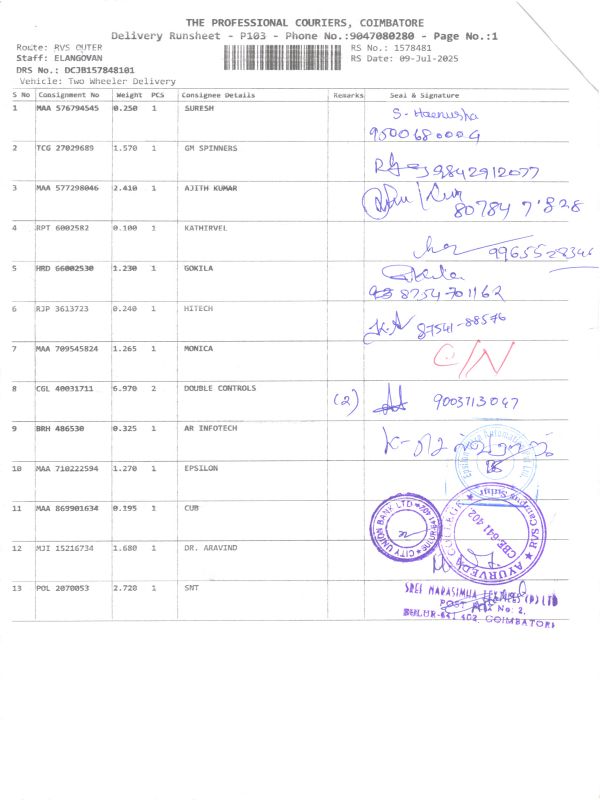 THE PROFESSIONAL COURIERS, COIMBATORE
Delivery Runsheet - P103 - Phone No.:9047080280 - Page No.:1
Route: RVS OUTER RS No.: 1578481
Staff: ELANGOVAN RS Date: 09-Jul-2025
DRS No.: DCJB157848101
Vehicle: Two Wheeler Delivery
S No Consignment No Weight PCS Consignee Details Remarks Seal & Signature
1 MAA 576794545 0.250 1 SURESH S. Haenusha
9500680009
2 TCG 27029689 1.570 1 GM SPINNERS 9842912077
3 MAA 577298046 2.410 1 AJITH KUMAR
80784 7'828
4 RPT 6002582 0.100 1 KATHIRVEL 9965528346
5 HRD 66002530 1.230 1 GOKILA Gokila
8754-701162
6 RJP 3613723 0.240 1 HITECH K.A 87541-88576
7 MAA 709545824 1.265 1 MONICA C/N
8 CGL 40031711 6.970 2 DOUBLE CONTROLS (2) 9003713047
9 BRH 486530 0.325 1 AR INFOTECH
10 MAA 710222594 1.270 1 EPSILON
11 MAA 869901634 0.195 1 CUB CITY UNION BANK LTD
SULUR-641 402
12 MJI 15216734 1.680 1 DR. ARAVIND RVS AYURVEDA COLLEGE
Campus Sulur
CBE 641 402
13 POL 2070053 2.720 1 SNT SREE NARASIMHA TEXTILES (P) LTD
POST No: 2,
SULUR-641 402, COIMBATORE